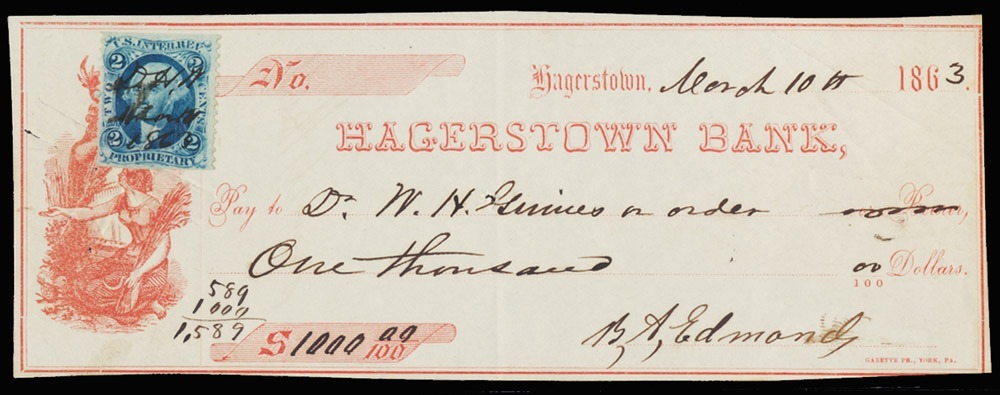 U.S. INTER. REV.
2 2
TWO CENTS
2 2
PROPRIETARY
No.
Hagerstown, March 10th 1863.
HAGERSTOWN BANK,
Pay to Dr. W. H. or order
One thousand 00/100 Dollars.
589
1000
1,589
$1000 00/100
B, A, Edmonds
GAZETTE PR., YORK, PA.